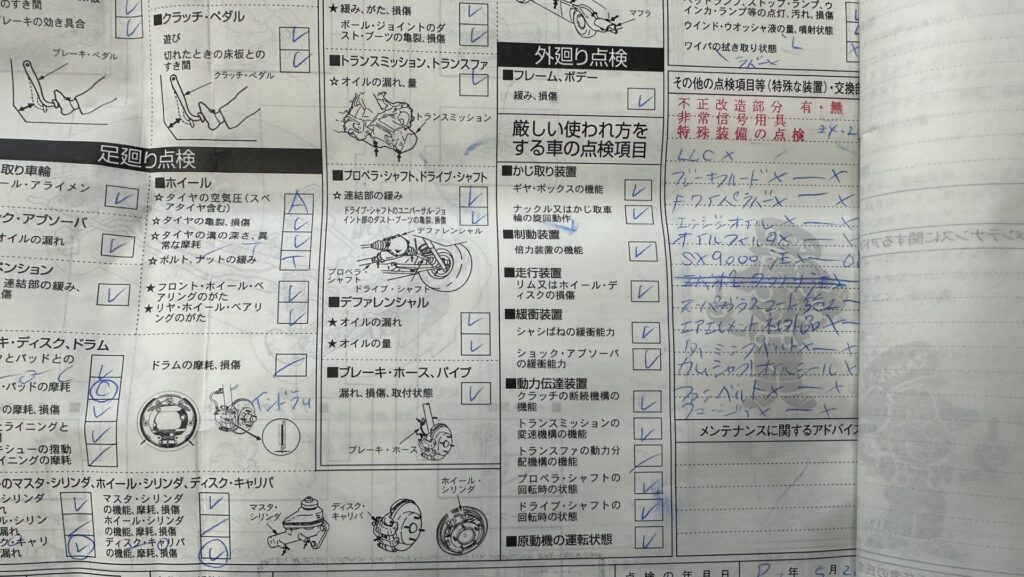 のすき間
ブレーキの効き具合
ブレーキ・ペダル
■クラッチ・ペダル
遊び
切れたときの床板との
すき間
クラッチ・ペダル
足廻り点検
取り車輪
ール・アライメン
ック・アブソーバ
オイルの漏れ
ペンション
連結部の緩み、
傷
■ホイール
☆タイヤの空気圧(スペ
アタイヤ含む) A
☆タイヤの亀裂、損傷
☆タイヤの溝の深さ、異
常な摩耗
☆ボルト、ナットの緩み T
★フロント・ホイール・ベ
アリングのがた
★リヤ・ホイール・ベアリ
ングのがた
キ・ディスク、ドラム
クとパッドとの
・パッドの摩耗 C
の摩耗、損傷
とライニングと
キシューの摺動
イニングの摩耗
ドラムの摩耗、損傷
インドラム
のマスタ・シリンダ、ホイール・シリンダ、ディスク・キャリパ
マスタ・シリンダ
の機能、摩耗、損傷
ホイール・シリンダ
の機能、摩耗、損傷
ディスク・キャリパ
の機能、摩耗、損傷
マスタ・
シリンダ
ディスク・
キャリパ
ホイール・
シリンダ
★緩み、がた、損傷
ボール・ジョイントのダ
スト・ブーツの亀裂、損傷
■トランスミッション、トランスファ
☆オイルの漏れ、量
トランスミッション
■プロペラ・シャフト、ドライブ・シャフト
☆連結部の緩み
ドライブ・シャフトのユニバーサル・ジョ
イント部のダスト・ブーツの亀裂、損傷
デファレンシャル
プロペラ・
シャフト
ドライブ・シャフト
■デファレンシャル
★オイルの漏れ
★オイルの量
■ブレーキ・ホース、パイプ
漏れ、損傷、取付状態
ブレーキ・ホース
マフラ
外廻り点検
■フレーム、ボデー
緩み、損傷
厳しい使われ方を
する車の点検項目
■かじ取り装置
ギヤ・ボックスの機能
ナックル又はかじ取車
輪の旋回動作
■制動装置
倍力装置の機能
■走行装置
リム又はホイール・デ
ィスクの損傷
■緩衝装置
シャシばねの緩衝能力
ショック・アブソーバ
の緩衝能力
■動力伝達装置
クラッチの断続機構の
機能
トランスミッションの
変速機構の機能
トランスファの動力分
配機構の機能
プロペラ・シャフトの
回転時の状態
ドライブ・シャフトの
回転時の状態
■原動機の運転状態
ッドランプ、ストップ・ランプ、ウ
インカ・ランプ等の点灯、汚れ、損傷
ウインド・ウオッシャ液の量、噴射状態
ワイパの拭き取り状態
その他の点検項目等(特殊な装置)・交換部
不正改造部分 有・無
非常信号用具
特殊装備の点検
LLC X
ブレーキフルード X ― X
F.ワイパラバー X
エンジンオイル
オイルフィルタ X
SX9000
エアエレメント
タイミングベルト X ― X
カムシャフトオイルシール X
ファンベルト X ― X
メンテナンスに関するアドバイス
点検の年月日 R 年 5月2